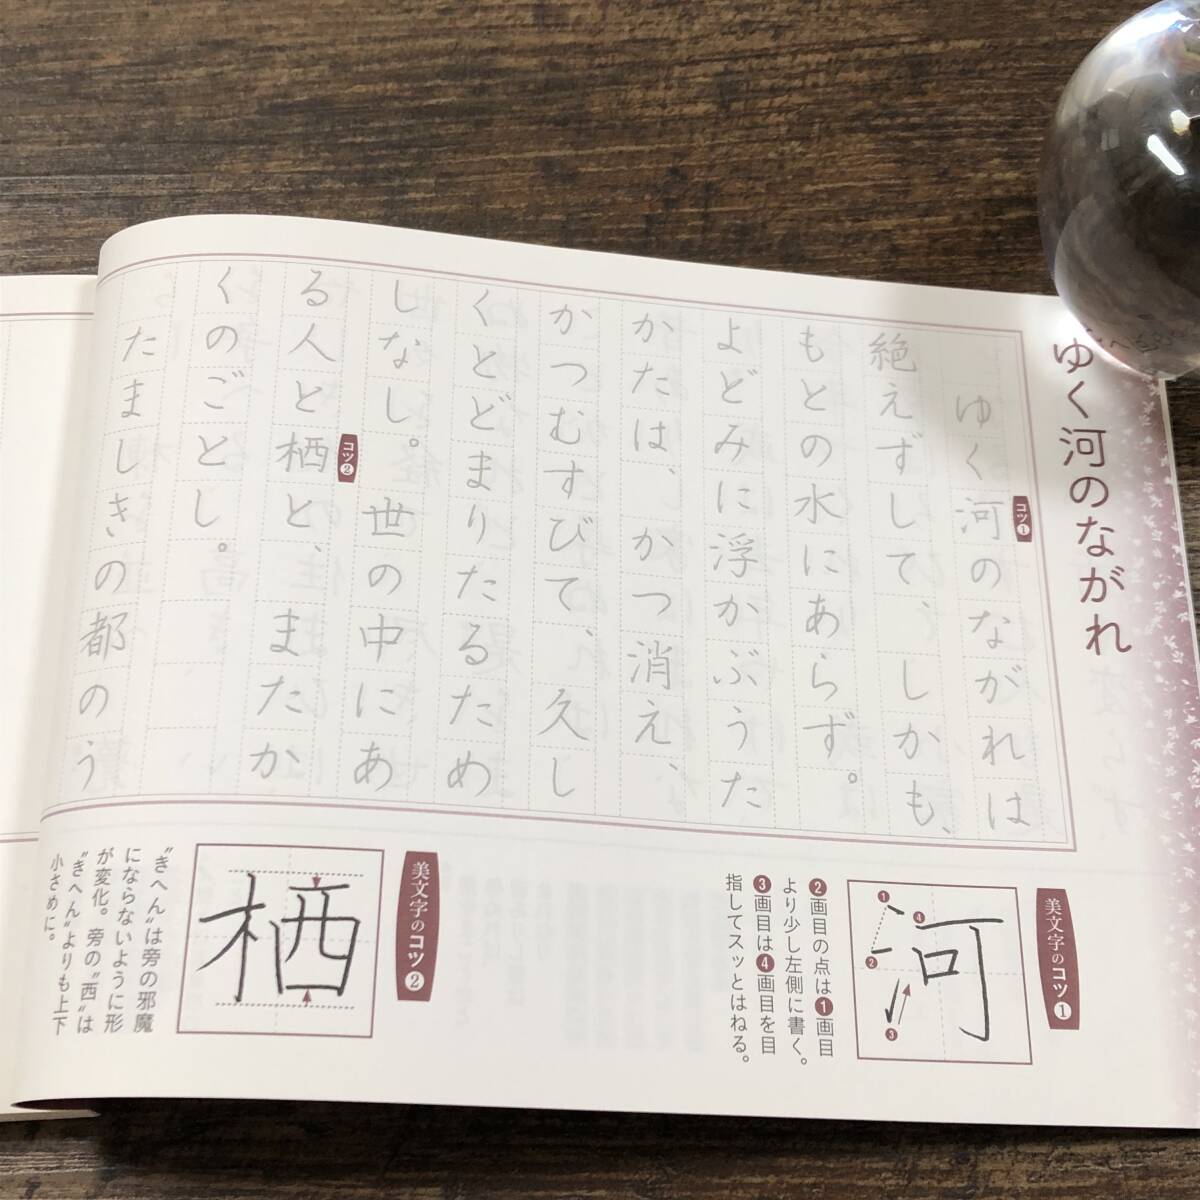 ゆく河のながれ
ゆく河のながれは
コツ❶
絶えずして、しかも、
もとの水にあらず。
よどみに浮かぶうた
かたは、かつ消え、
かつむすびて、久し
くとどまりたるため
しなし。世の中にあ
る人と栖と、またか
コツ❷
くのごとし。
たましきの都のう
美文字のコツ❶
河
❶
❷
❸
❹
❷画目の点は❶画目
より少し左側に書く。
❸画目は❹画目を目
指してスッとはねる。
美文字のコツ❷
栖
〝きへん〟は旁の邪魔
にならないように形
が変化。旁の〝西〟は
〝きへん〟よりも上下
小さめに。